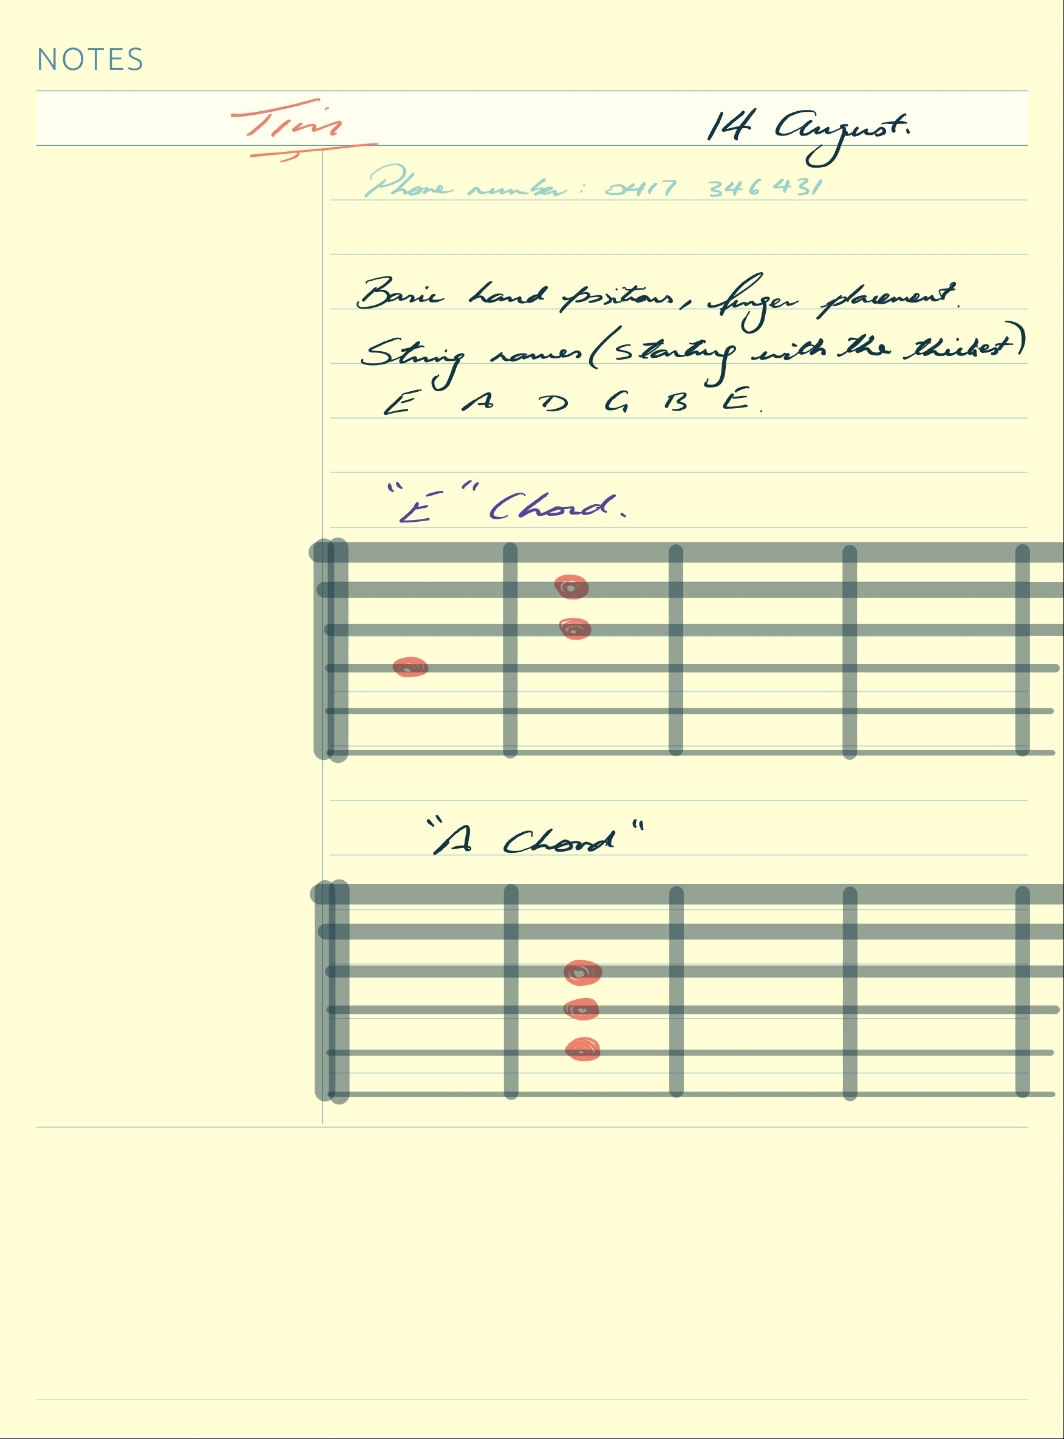 NOTES
Tim
14 August.
Phone number: 0417 346 431
Basic hand positions, finger placement.
String names (starting with the thickest)
E A D G B E.
"E" Chord.
"A Chord"